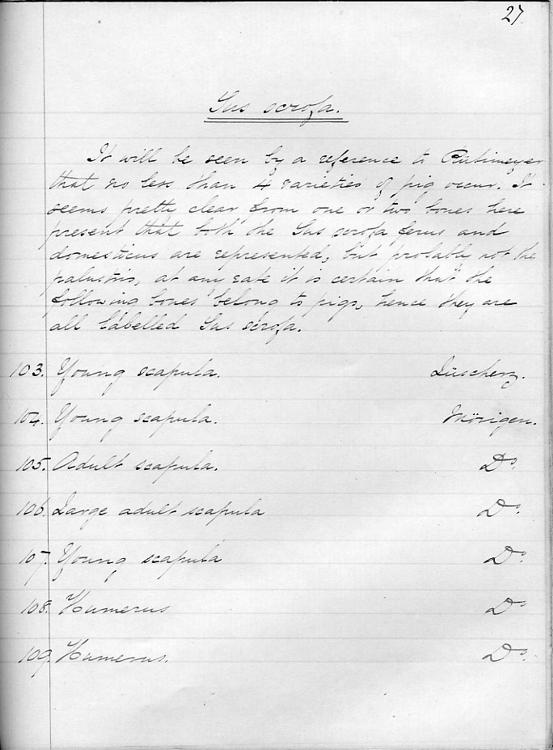 27
Sus scrofa.
It will be seen by a reference to Rütimeyer
that no less than 4 varieties of pig occur. It
seems pretty clear from one or two bones here
present that both the Sus scrofa ferus and
domesticus are represented, but probably not the
palustris, at any rate it is certain that the
following bones belong to pigs, hence they are
all labelled Sus scrofa.
103. Young scapula. Lüscherz.
104. Young scapula. Mörigen.
105. Adult scapula. Do.
106. Large adult scapula Do.
107. Young scapula Do.
108. Humerus Do
109. Humerus. Do.